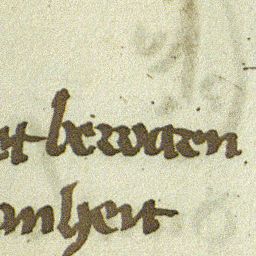 et bewaren
anheit